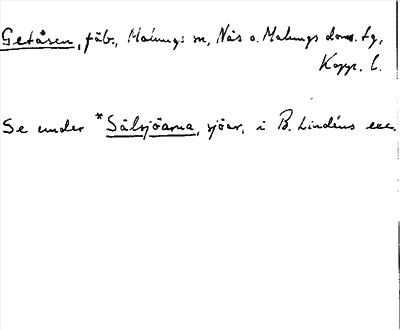 Getåsen, fäb., Malungs sn, Nås o. Malungs doms. tg,
Kopp. l.
Se under *Sälsjöarna, sjöar, i B. Lindéns exc.